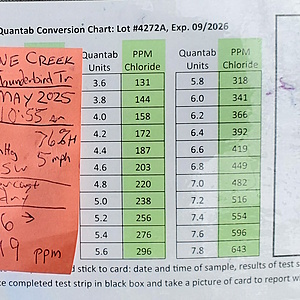 Quantab Conversion Chart: Lot #4272A, Exp. 09/2026
Quantab Units PPM Chloride Quantab Units PPM Chloride
3.6 131 5.8 318
3.8 144 6.0 341
4.0 158 6.2 366
4.2 172 6.4 392
4.4 187 6.6 419
4.6 203 6.8 449
4.8 220 7.0 482
5.0 238 7.2 516
5.2 256 7.4 554
5.4 276 7.6 596
5.6 296 7.8 643
CREEK
Thunderbird Tr
MAY 2025
10:55 am
76%H
5 mph
SW
dry
6 →
19 ppm
stick to card: date and time of sample, results of test s
ce completed test strip in black box and take a picture of card to report w